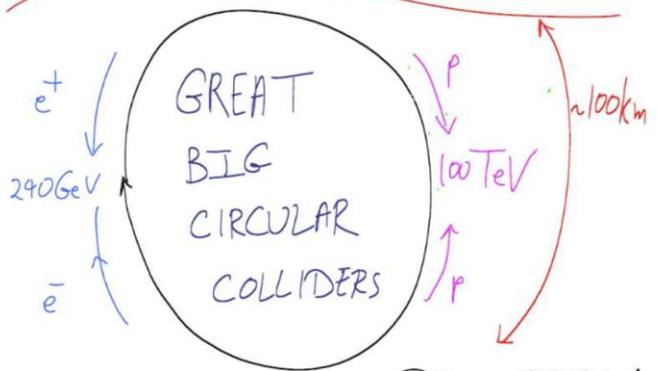 e⁺
240GeV
e⁻
GREAT
BIG
CIRCULAR
COLLIDERS
p
100 TeV
p
~100km